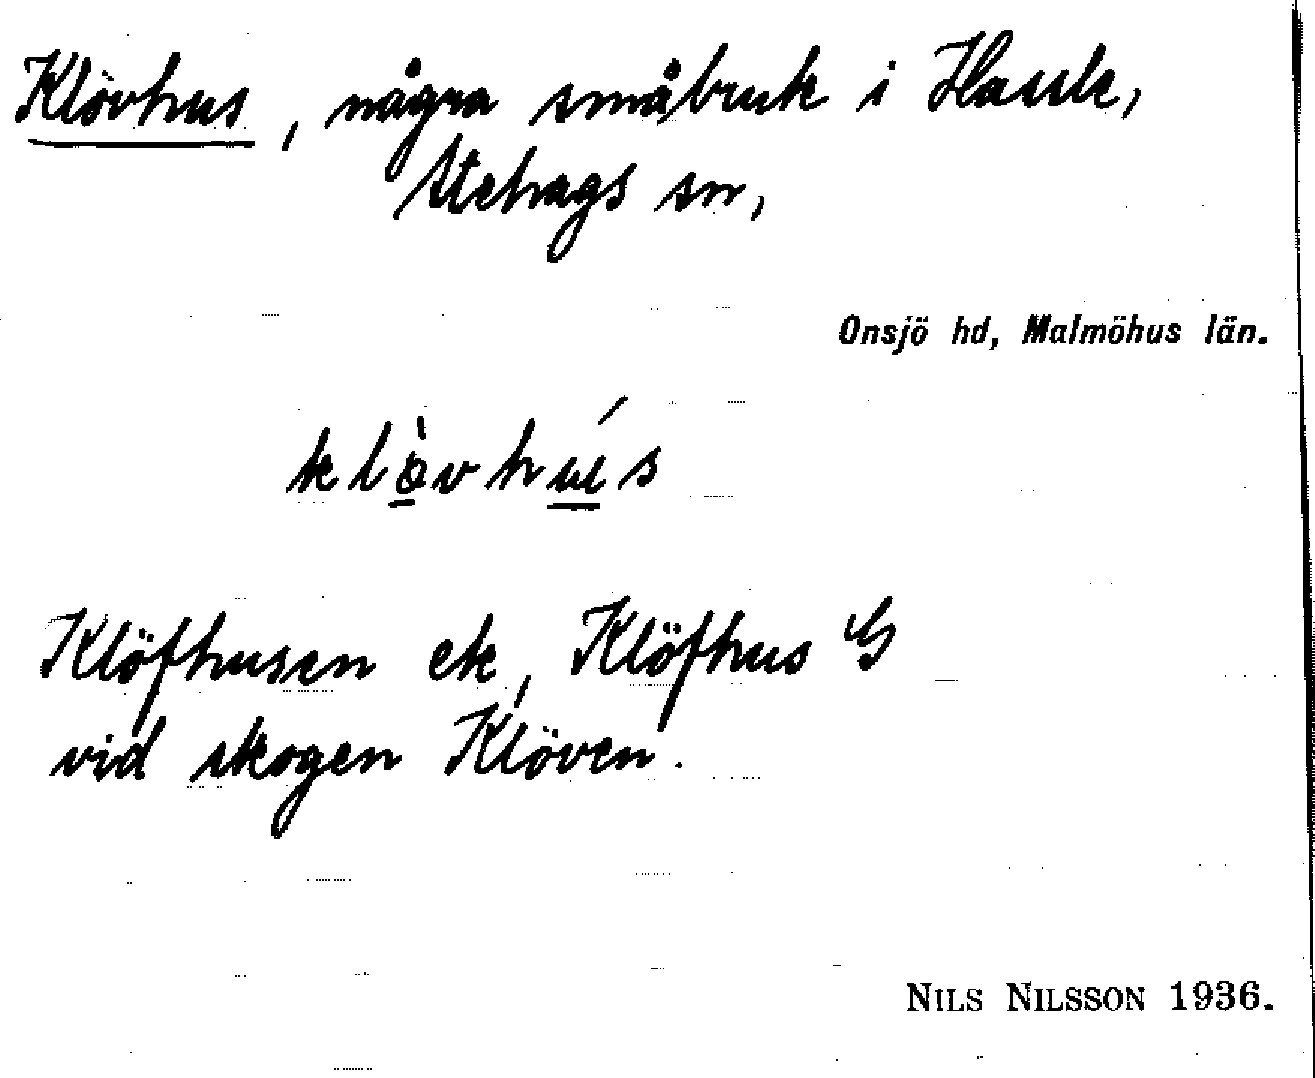 Klövhus, några småbruk i Hassle,
Stehags sn,
Onsjö hd, Malmöhus län.
Klöfhusen ek, Klöfhus G
vid skogen Klöven.
NILS NILSSON 1936.